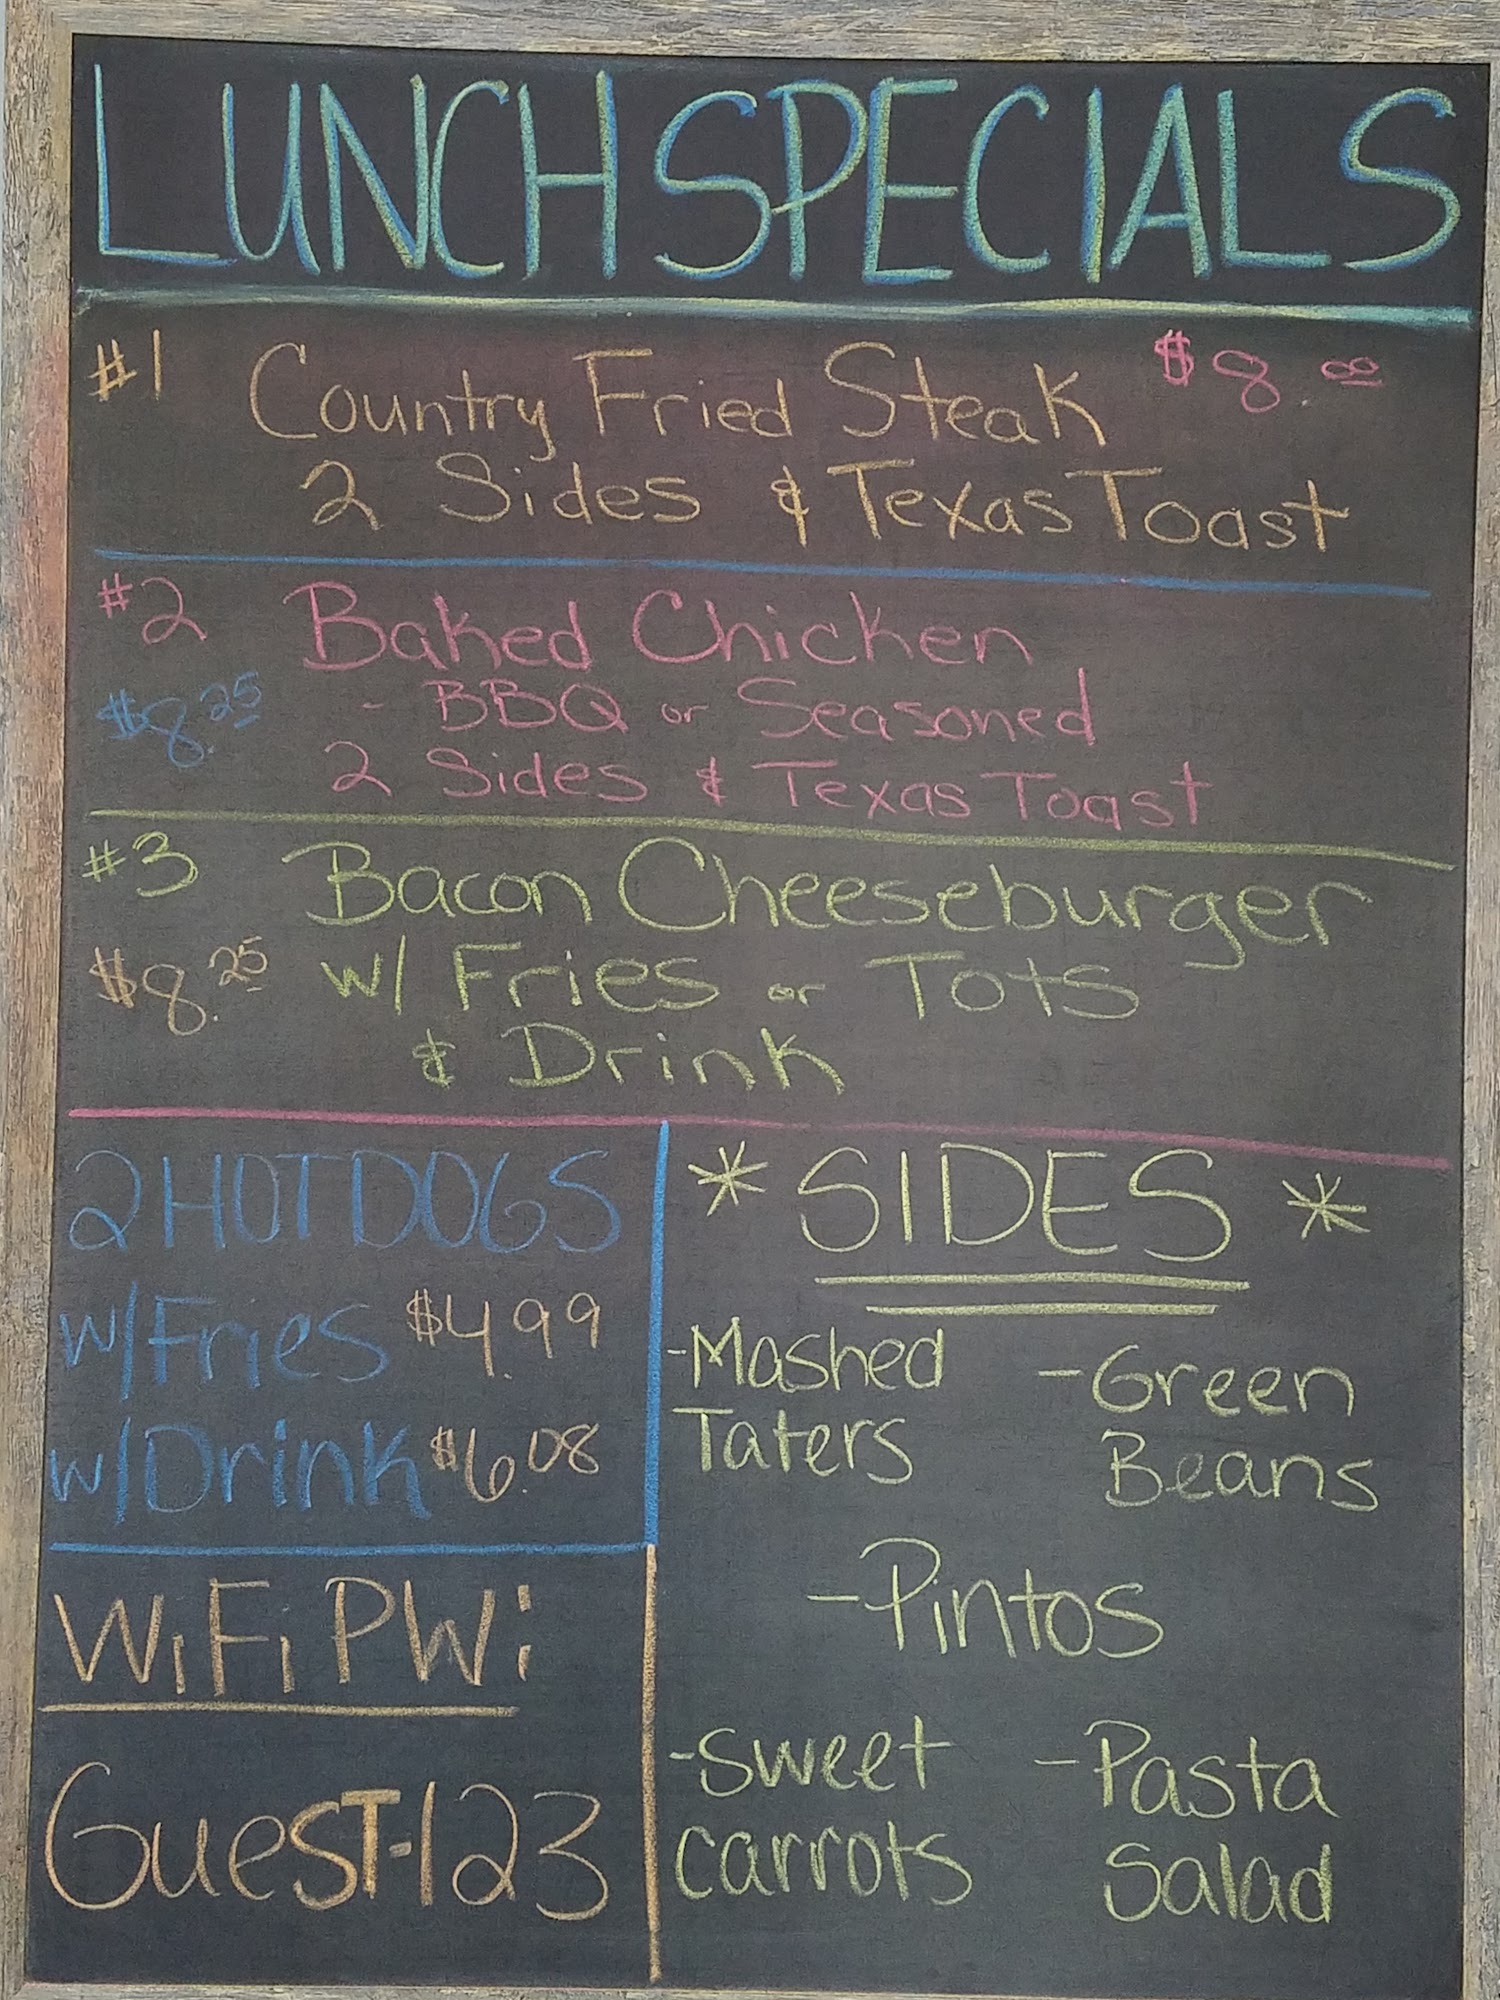 LUNCH SPECIALS
#1 Country Fried Steak $8.00
2 Sides & Texas Toast
#2 Baked Chicken
$8.25 - BBQ or Seasoned
2 Sides & Texas Toast
#3 Bacon Cheeseburger
$8.25 w/ Fries or Tots
& Drink
2 HOTDOGS
w/Fries $4.99
w/Drink $6.08
WiFi PW:
GuesT-123
* SIDES *
-Mashed
Taters
-Green
Beans
-Pintos
-Sweet
carrots
-Pasta
Salad